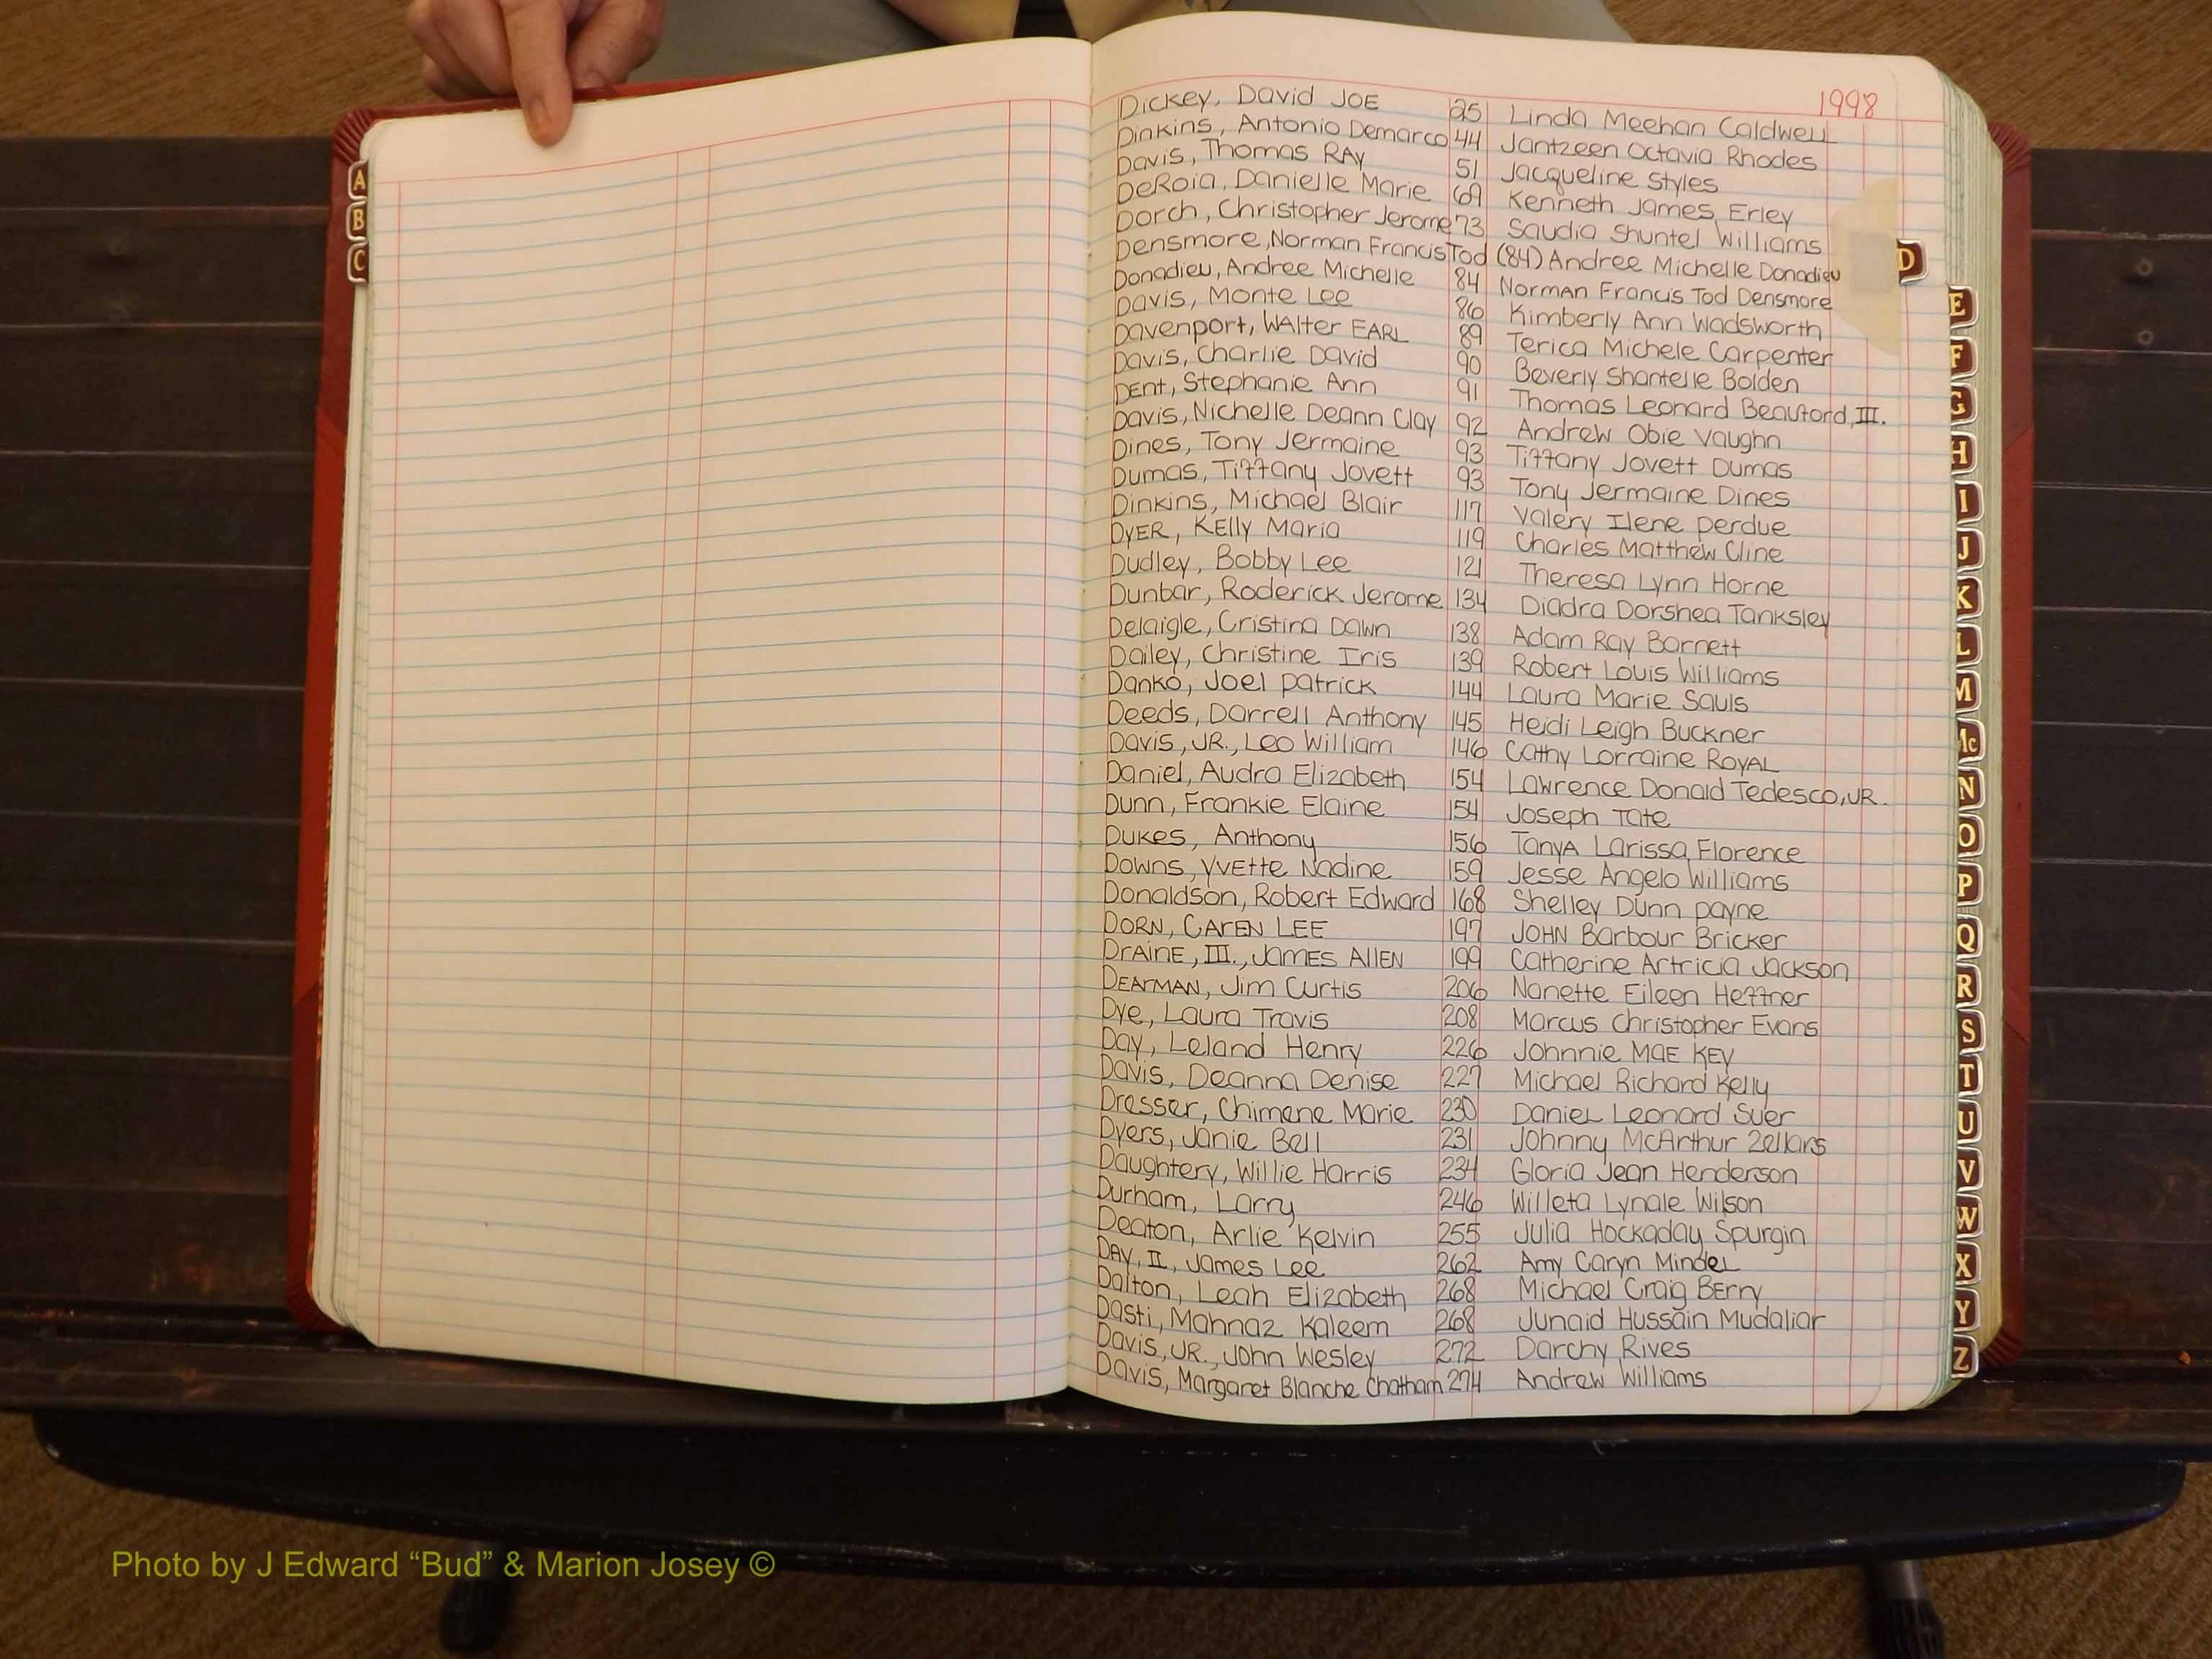 1998
Dickey, David Joe 25 Linda Meehan Caldwell
Dinkins, Antonio Demarco 44 Jantzeen Octavia Rhodes
Davis, Thomas Ray 51 Jacqueline Styles
DeRoia, Danielle Marie 69 Kenneth James Erley
Dorch, Christopher Jerome 73 Saudia Shuntel Williams
Densmore, Norman Francis Tod (84) Andree Michelle Donadieu
Donadieu, Andree Michelle 84 Norman Francis Tod Densmore
Davis, Monte Lee 86 Kimberly Ann Wadsworth
Davenport, Walter Earl 89 Terica Michele Carpenter
Davis, Charlie David 90 Beverly Shantelle Bolden
Dent, Stephanie Ann 91 Thomas Leonard Beauford, III.
Davis, Nichelle Deann Clay 92 Andrew Obie Vaughn
Dines, Tony Jermaine 93 Tiffany Jovett Dumas
Dumas, Tiffany Jovett 93 Tony Jermaine Dines
Dinkins, Michael Blair 117 Valery Ilene Perdue
Dyer, Kelly Maria 119 Charles Matthew Cline
Dudley, Bobby Lee 121 Theresa Lynn Horne
Dunbar, Roderick Jerome 134 Diadra Dorshea Tanksley
Delaigle, Cristina Dawn 138 Adam Ray Barnett
Dailey, Christine Iris 139 Robert Louis Williams
Danko, Joel Patrick 144 Laura Marie Sauls
Deeds, Darrell Anthony 145 Heidi Leigh Buckner
Davis, JR., Leo William 146 Cathy Lorraine Royal
Daniel, Audra Elizabeth 154 Lawrence Donald Tedesco, JR.
Dunn, Frankie Elaine 154 Joseph Tate
Dukes, Anthony 156 Tanya Larissa Florence
Downs, Yvette Nadine 159 Jesse Angelo Williams
Donaldson, Robert Edward 168 Shelley Dunn Payne
Dorn, Caren Lee 197 John Barbour Bricker
Draine, III., James Allen 199 Catherine Artricia Jackson
Dearman, Jim Curtis 206 Nanette Eileen Heffner
Dye, Laura Travis 208 Marcus Christopher Evans
Day, Leland Henry 226 Johnnie Mae Key
Davis, Deanna Denise 227 Michael Richard Kelly
Dresser, Chimene Marie 230 Daniel Leonard Suer
Dyers, Janie Bell 231 Johnny McArthur Zellars
Daughtery, Willie Harris 234 Gloria Jean Henderson
Durham, Larry 246 Willeta Lynale Wilson
Deaton, Arlie Kelvin 255 Julia Hockaday Spurgin
Day, II, James Lee 262 Amy Caryn Mindel
Dalton, Leah Elizabeth 268 Michael Craig Berry
Dasti, Mahnaz Kaleem 268 Junaid Hussain Mudaliar
Davis, JR., John Wesley 272 Darchy Rives
Davis, Margaret Blanche Chatham 274 Andrew Williams
A
B
C
D
E
F
G
H
I
J
K
L
M
Mc
N
O
P
Q
R
S
T
U
V
W
X
Y
Z
Photo by J Edward “Bud” & Marion Josey ©